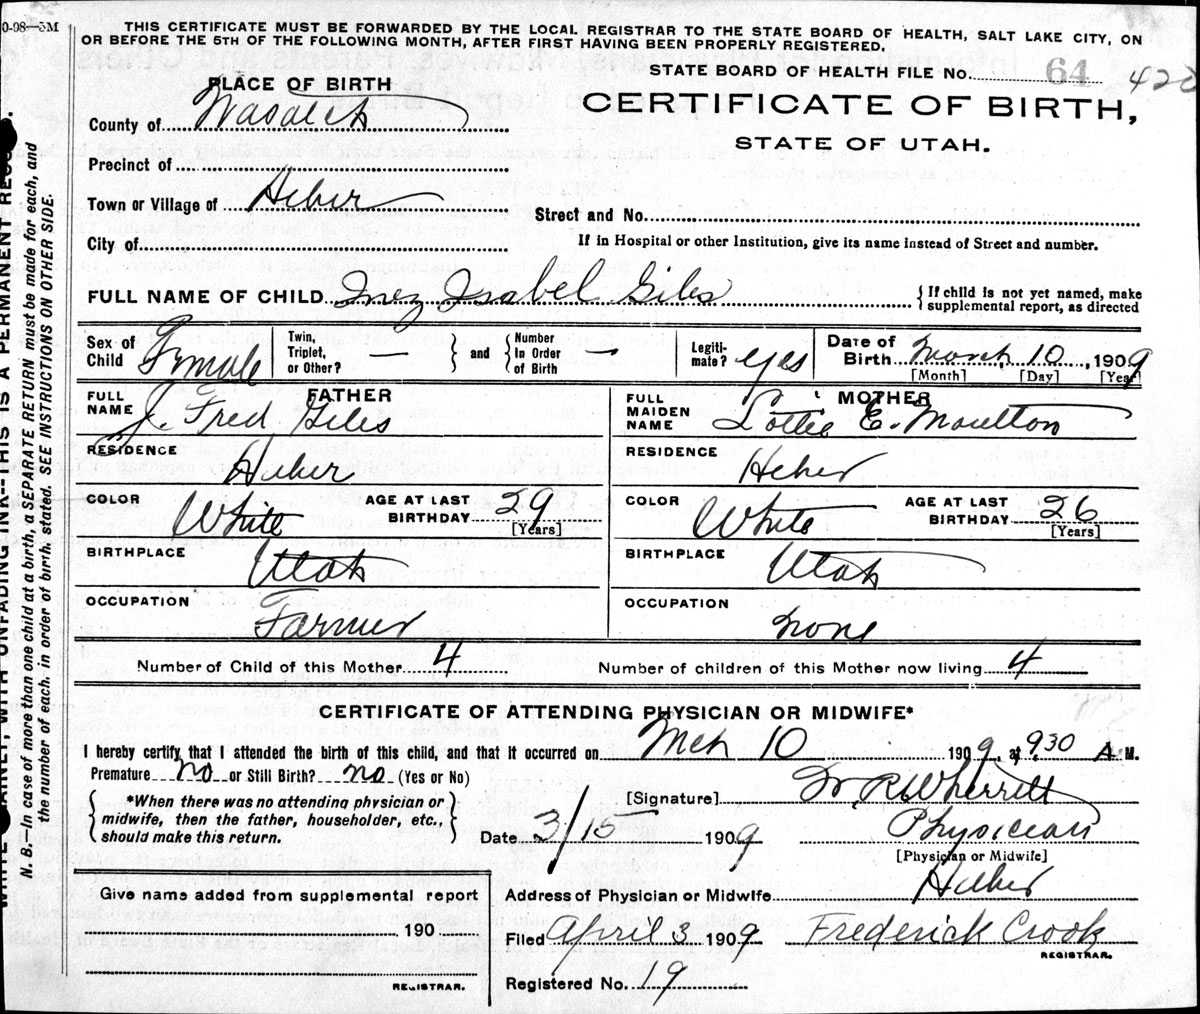 0-08—5M
THIS CERTIFICATE MUST BE FORWARDED BY THE LOCAL REGISTRAR TO THE STATE BOARD OF HEALTH, SALT LAKE CITY, ON
OR BEFORE THE 5TH OF THE FOLLOWING MONTH, AFTER FIRST HAVING BEEN PROPERLY REGISTERED.
PLACE OF BIRTH
STATE BOARD OF HEALTH FILE No. 64
County of Wasatch
CERTIFICATE OF BIRTH,
STATE OF UTAH.
Precinct of
Town or Village of Heber
Street and No.
City of
If in Hospital or other Institution, give its name instead of Street and number.
FULL NAME OF CHILD Inez Isabel Giles { If child is not yet named, make
supplemental report, as directed
Sex of Child Female
Twin, Triplet, or Other? —
} and {
Number In Order of Birth —
Legiti-mate? yes
Date of Birth March 10, 1909
[Month] [Day] [Year]
FATHER
FULL NAME J. Fred Giles
MOTHER
FULL MAIDEN NAME Lottie E. Moulton
RESIDENCE Heber
RESIDENCE Heber
COLOR White AGE AT LAST BIRTHDAY 29 [Years]
COLOR White AGE AT LAST BIRTHDAY 26 [Years]
BIRTHPLACE Utah
BIRTHPLACE Utah
OCCUPATION Farmer
OCCUPATION None
Number of Child of this Mother 4
Number of children of this Mother now living 4
CERTIFICATE OF ATTENDING PHYSICIAN OR MIDWIFE*
I hereby certify that I attended the birth of this child, and that it occurred on Mch 10 1909, at 9.30 A M.
Premature no or Still Birth? no (Yes or No)
{ *When there was no attending physician or
midwife, then the father, householder, etc.,
should make this return. }
[Signature] Dr. R Wherritt
Date 3/15 1909 Physician
[Physician or Midwife]
Give name added from supplemental report
190
REGISTRAR.
Address of Physician or Midwife Heber
Filed April 3 1909 Frederick Crook
REGISTRAR.
Registered No. 19
N.B.—In case of more than one child at a birth, a SEPARATE RETURN must be made for each, and
the number of each. in order of birth. stated. SEE INSTRUCTIONS ON OTHER SIDE.
WITH UNFADING INK--THIS IS A PERMANENT